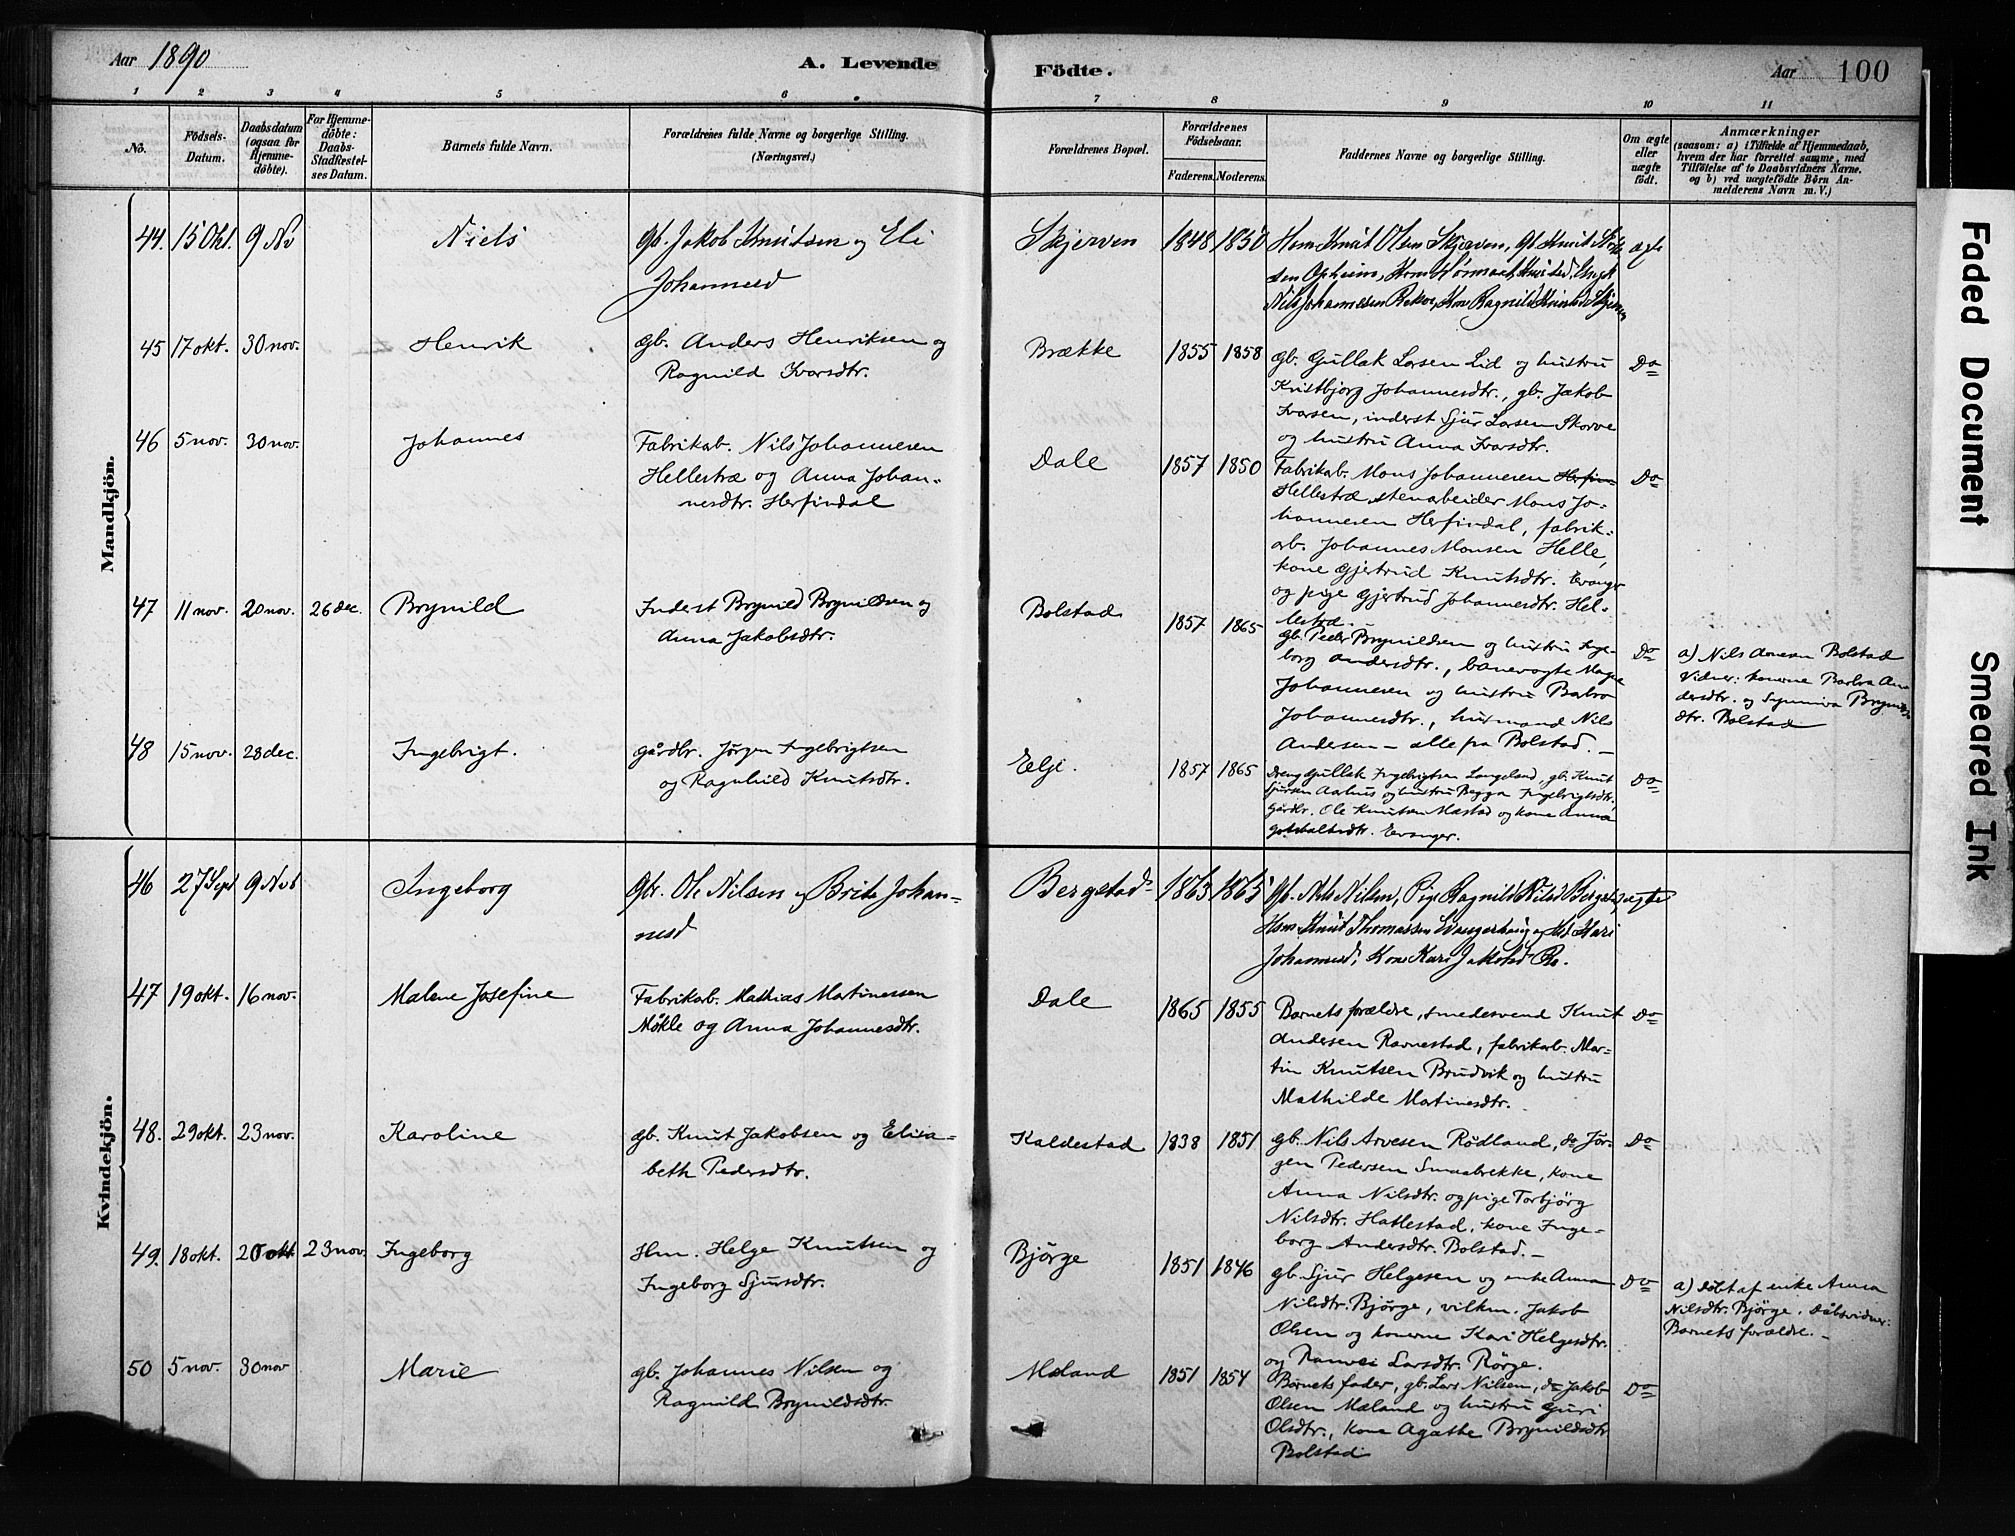 Aar 1890
A. Levende Födte.
Aar 100
1 2 3 4 5 6 7 8 9 10 11
No.
Födsels-
Datum.
Daabsdatum
(ogsaa for
Hjemme-
döbte).
For Hjemme-
döbte:
Daabs-
Stadfæstel-
ses Datum.
Barnets fulde Navn.
Forældrenes fulde Navne og borgerlige Stilling.
(Næringsvei.)
Forældrenes Bopæl.
Forældrenes
Födselsaar.
Faderens. Moderens.
Faddernes Navne og borgerlige Stilling.
Om ægte
eller
uægte
födt.
Anmærkninger
(saasom: a) i Tilfælde af Hjemmedaab,
hvem der har forrettet samme, med
Tilföielse af to Daabsvidners Navne.
og b) ved uægtefödte Börn An-
melderens Navn m. V.)
Mandkjön.
44. 15 Okt. 9 Nv Niels
Gb. Jakob Knutsen og Eli
Johannesd
Skjerven 1848 1850
Hsm Knut Olsen Skjerven, Gb. Knut
Opheim,
Nils Johannesen Kone Ragnild Knutsd Skjerven
ægte
45 17 okt. 30 nov. Henrik
gb. Anders Henriksen og
Ragnild Ivarsdtr.
Brække 1855 1858
gb. Gullak Larsen Lid og hustru
Kristbjorg Johannesdtr., gb. Jakob
Ivarsen, inderst Sjur Larsen Skorve
og hustru Anna Ivarsdtr.
Do
46 5 nov. 30 nov. Johannes
Fabrikarb. Nils Johannesen
Hellestræ og Anna Johan-
nesdtr. Herfindal
Dale 1857 1850
Fabrikarb. Mons Johannesen Herfin-
Hellestræ, stenarbeider Mons Jo-
hannesen Herfindal, fabrik-
arb. Johannes Monsen Helle,
kone Gjertrud Knutsdtr. Evanger
og pige Gjertrud Johannesdtr. Hel-
lestræ.
Do
47 11 nov. 20 nov. 26 dec. Brynild
Inderst Brynild Brynildsen og
Anna Jakobsdtr.
Bolstad 1857 1865
gb. Peder Brynildsen og hustru Inge-
borg Andersdtr., banevogte Magne
Johannesen og hustru Barbro
Johannesdtr., husmand Nils
Andersen – alle fra Bolstad. –
Do
a) Nils Bolstad
Vidner: konerne Barbra An-
dersdtr. og Synniva Brynilds-
dtr. Bolstad
48 15 nov. 28 dec. Ingebrigt.
gårdbr. Jørgen Ingebrigtsen
og Ragnhild Knutsdtr.
Elje. 1857 1865
Dreng Gullak Ingebrigtsen Langeland, gb. Knut
Sjursen Aarhus og hustru Begga Ingebrigtsdtr.,
Gårdbr. Ole Knutsen Mæstad og kone Anna
Evanger.
Do
Kvindekjön.
46 27 Sept 9 Nvb Ingeborg
Gbr. Ole Nilsen og Brita Johan-
nesd
Bergstad 1863 1865
Gb. Nils Nilsen, Pige Ragnild Nilsd Bergstad,
Hsm Knud Thomassen Kari
Johannesd, Kone Kari Jakobsd
ægte
47 19 okt. 16 nov. Malene Josefine
Fabrikarb. Mathias Martinessen
Møkle og Anna Johannesdtr.
Dale 1865 1855
Barnets forældre, smedesvend Knut
Andersen Ravnestad, fabrikarb. Mar-
tin Knutsen Brudvik og hustru
Mathilde Martinesdtr.
Do
48. 29 okt. 23 nov. Karoline
gb. Knut Jakobsen og Elisa-
beth Pedersdtr.
Kaldestad 1838 1851
gb. Nils Arvesen Rødland, do Jør-
gen Pedersen Smaabrekke, kone
Anna Nilsdtr. og pige Torbjørg
Nilsdtr. Hatlestad, kone Inge-
borg Andersdtr. Bolstad. –
Do
49. 18 okt. 20 okt. 23 nov. Ingeborg
Hm. Helge Knutsen og
Ingeborg Sjursdtr.
Bjørge 1851 1846
gb. Sjur Helgesen og enke Anna
Nilsdtr. Bjørge, vilkm. Jakob
Olsen og konerne Kari Helgesdtr.
og Ranvei Larsdtr. Rørge.
Do
a) døbt af enke Anna
Nilsdtr. Bjørge. Dåbsvidner:
Barnets forældre. –
50 5 nov. 30 nov Marie
gb. Johannes Nilsen og
Ragnild Brynildsdtr.
Mæland 1851 1854
Barnets fader, gb. Lars Nilsen, do Jakob
Olsen Mæland og hustru Guri
Olsdtr., kone Agathe Brynildsdtr
Bolstad
Do
Faded Document
Smeared Ink